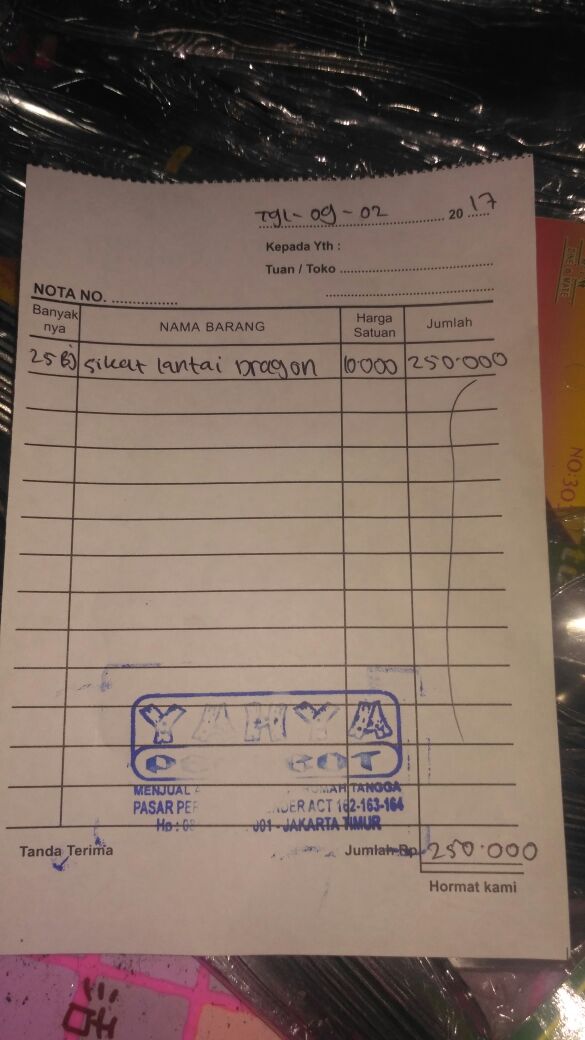 Tgl- 09 - 02 2017
Kepada Yth :
Tuan / Toko
NOTA NO.
Banyak nya NAMA BARANG Harga Satuan Jumlah
25 Bj sikat lantai Dragon 10.000 250.000
YAHYA
MENJUAL RUMAH TANGGA
PASAR ACT 162-163-164
Hp : 001 - JAKARTA TIMUR
Tanda Terima Jumlah Rp. 250.000
Hormat kami